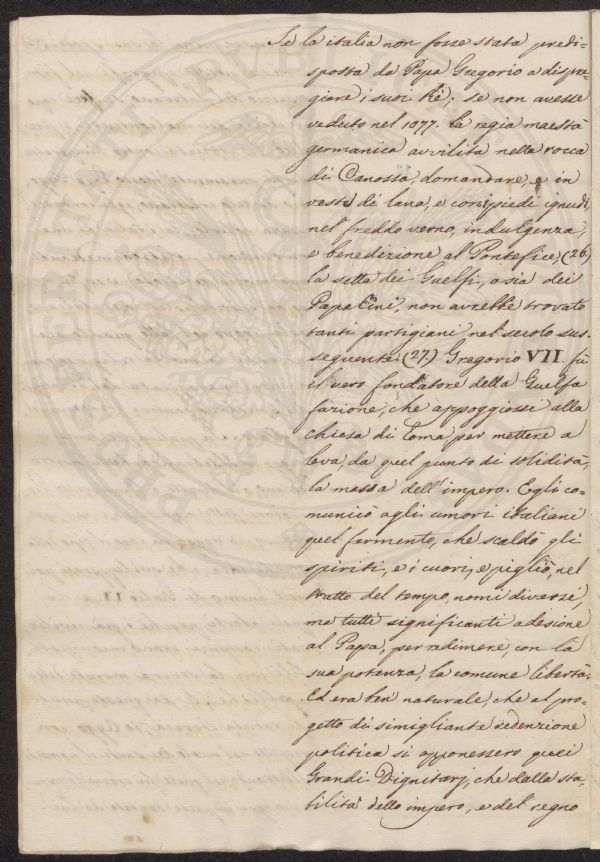 Se la italia non fosse stata predi-
sposta da Papa Gregorio a dispre-
giare i suoi Rè; se non avesse
veduto nel 1077. la regia maestà
germanica avvilita nella rocca
di Canossa, domandare, e in
veste di lana, e con i piedi ignudi,
nel freddo verno, indulgenza,
e benedizione al Pontefice, (26)
la setta dei Guelfi, o sia dei
Papalini, non avrebbe trovato
tanti partigiani nel secolo sus-
seguente (27.) Gregorio VII. fù
il vero fondatore della Guelfa
fazione, che appoggiossi alla
chiesa di Roma, per mettere a
leva, da quel punto di solidità,
la massa dell'impero. Egli co-
municò agli umori italiani
quel fermento, che scaldò gli
spiriti, e i cuori, e pigliò, nel
tratto del tempo, nomi diversi,
ma tutti significanti adesione
al Papa, per redimere, con la
sua potenza, la comune libertà.
Ed era ben naturale, che al pro-
getto di simigliante redenzione
politica si opponessero quei
Grandi Dignitarj, che dalla sta-
bilità dello impero, e del regno